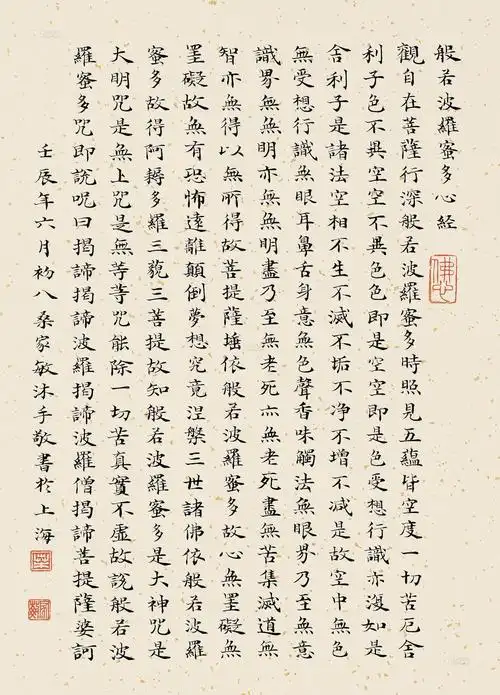 般若波羅蜜多心經
觀自在菩薩行深般若波羅蜜多時照見五蘊皆空度一切苦厄舍
利子色不異空空不異色色即是空空即是色受想行識亦復如是
舍利子是諸法空相不生不滅不垢不净不增不减是故空中無色
無受想行識無眼耳鼻舌身意無色聲香味觸法無眼界乃至無意
識界無無明亦無無明盡乃至無老死亦無老死盡無苦集滅道無
智亦無得以無所得故菩提薩埵依般若波羅蜜多故心無罣礙無
罣礙故無有恐怖遠離顛倒夢想究竟涅槃三世諸佛依般若波羅
蜜多故得阿耨多羅三藐三菩提故知般若波羅蜜多是大神咒是
大明咒是無上咒是無等等咒能除一切苦真實不虛故說般若波
羅蜜多咒即說呪曰揭諦揭諦波羅揭諦波羅僧揭諦菩提薩婆訶
壬辰年六月初八桑家敏沐手敬書於上海
佛心